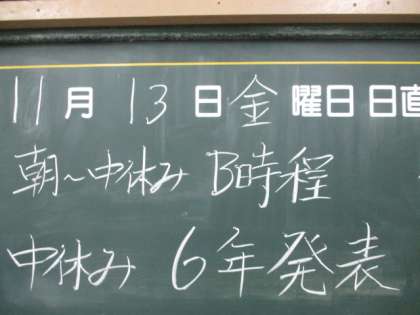 11月13日金曜日 日直
朝～中休み B時程
中休み 6年発表